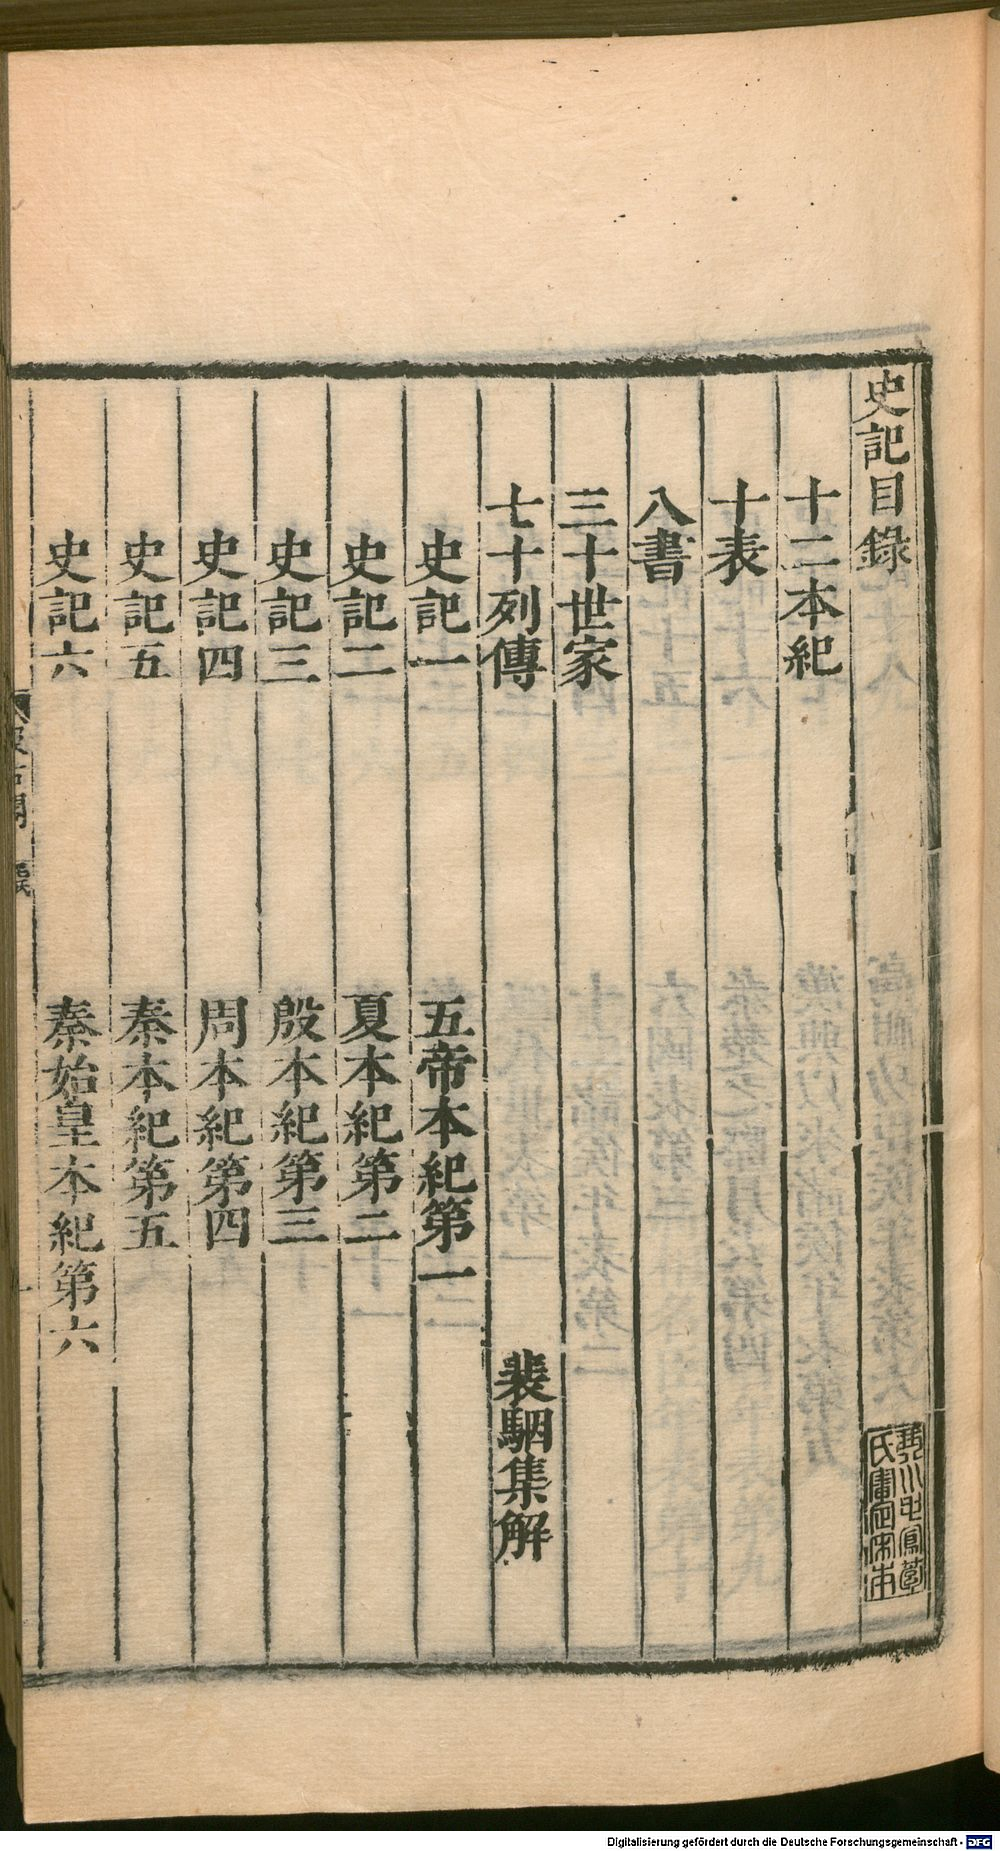 史記目錄
十二本紀
十表
八書
三十世家
七十列傳 裴駰集解
史記一 五帝本紀第一
史記二 夏本紀第二
史記三 殷本紀第三
史記四 周本紀第四
史記五 秦本紀第五
史記六 秦始皇本紀第六
Digitalisierung gefördert durch die Deutsche Forschungsgemeinschaft - DFG